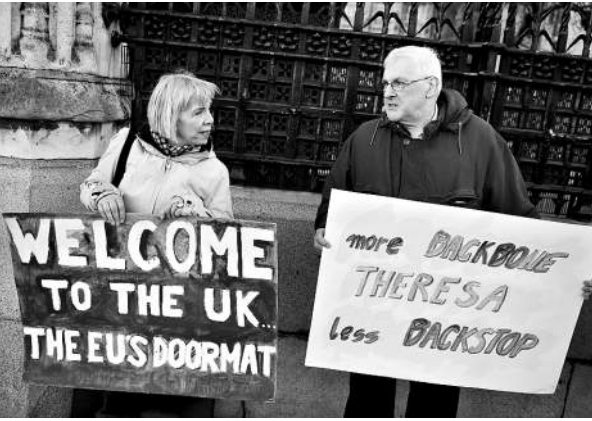 WELCOME
TO THE UK...
THE EU'S DOORMAT
more BACKBONE
THERESA
less BACKSTOP